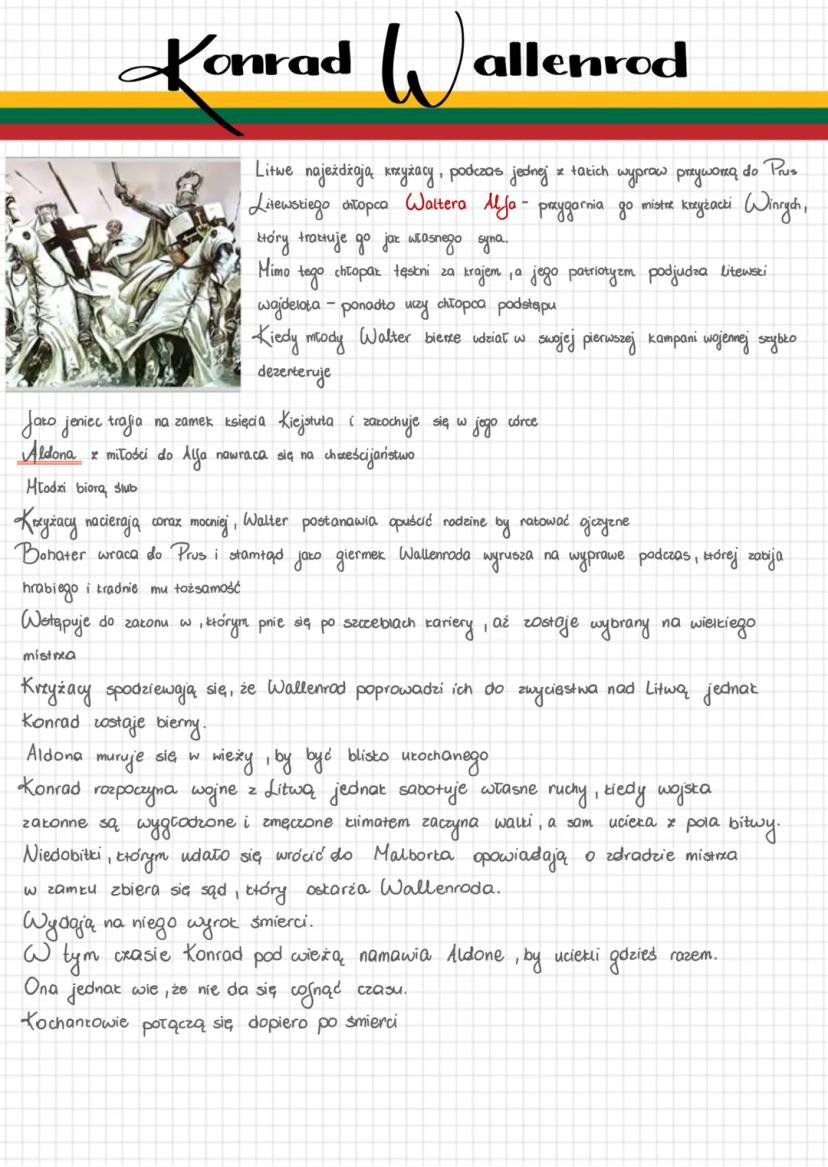 Konrad Wallenrod
Litwe najeżdżają krzyżacy, podczas jednej z takich wypraw przywożą do Prus
Litewskiego chłopca Waltera Alfa - przygarnia go mistrz krzyżacki Winrych,
który traktuje go jak własnego syna.
Mimo tego chłopak tęskni za krajem, a jego patriotyzm podjudza litewski
wajdelota - ponadto uczy chłopca podstępu
Kiedy młody Walter bierze udział w swojej pierwszej kampani wojennej szybko
dezerteruje
Jako jeniec trafia na zamek księcia Kiejstuta i zakochuje się w jego córce
Aldona z miłości do Alfa nawraca się na chrześcijaństwo
Młodzi biorą ślub
Krzyżacy nacierają coraz mocniej, Walter postanawia opuścić rodzine by ratować ojczyzne
Bohater wraca do Prus i stamtąd jako giermek Wallenroda wyrusza na wyprawe podczas, której zabija
hrabiego i kradnie mu tożsamość
Wstępuje do zakonu w, którym pnie się po szczeblach kariery, aż zostaje wybrany na wielkiego
mistrza
Krzyżacy spodziewają się, że Wallenrod poprowadzi ich do zwycięstwa nad Litwą jednak
Konrad zostaje bierny.
Aldona muruje się w wieży, by być blisko ukochanego
Konrad rozpoczyna wojne z Litwą jednak sabotuje własne ruchy, kiedy wojska
zakonne są wygłodzone i zmęczone klimatem zaczyna walki, a sam ucieka z pola bitwy.
Niedobitki, którym udało się wrócić do Malborka opowiadają o zdradzie mistrza
w zamku zbiera się sąd, który oskarża Wallenroda.
Wydają na niego wyrok śmierci.
W tym czasie Konrad pod wieżą namawia Aldone, by uciekli gdzieś razem.
Ona jednak wie, że nie da się cofnąć czasu.
Kochankowie połączą się dopiero po śmierci